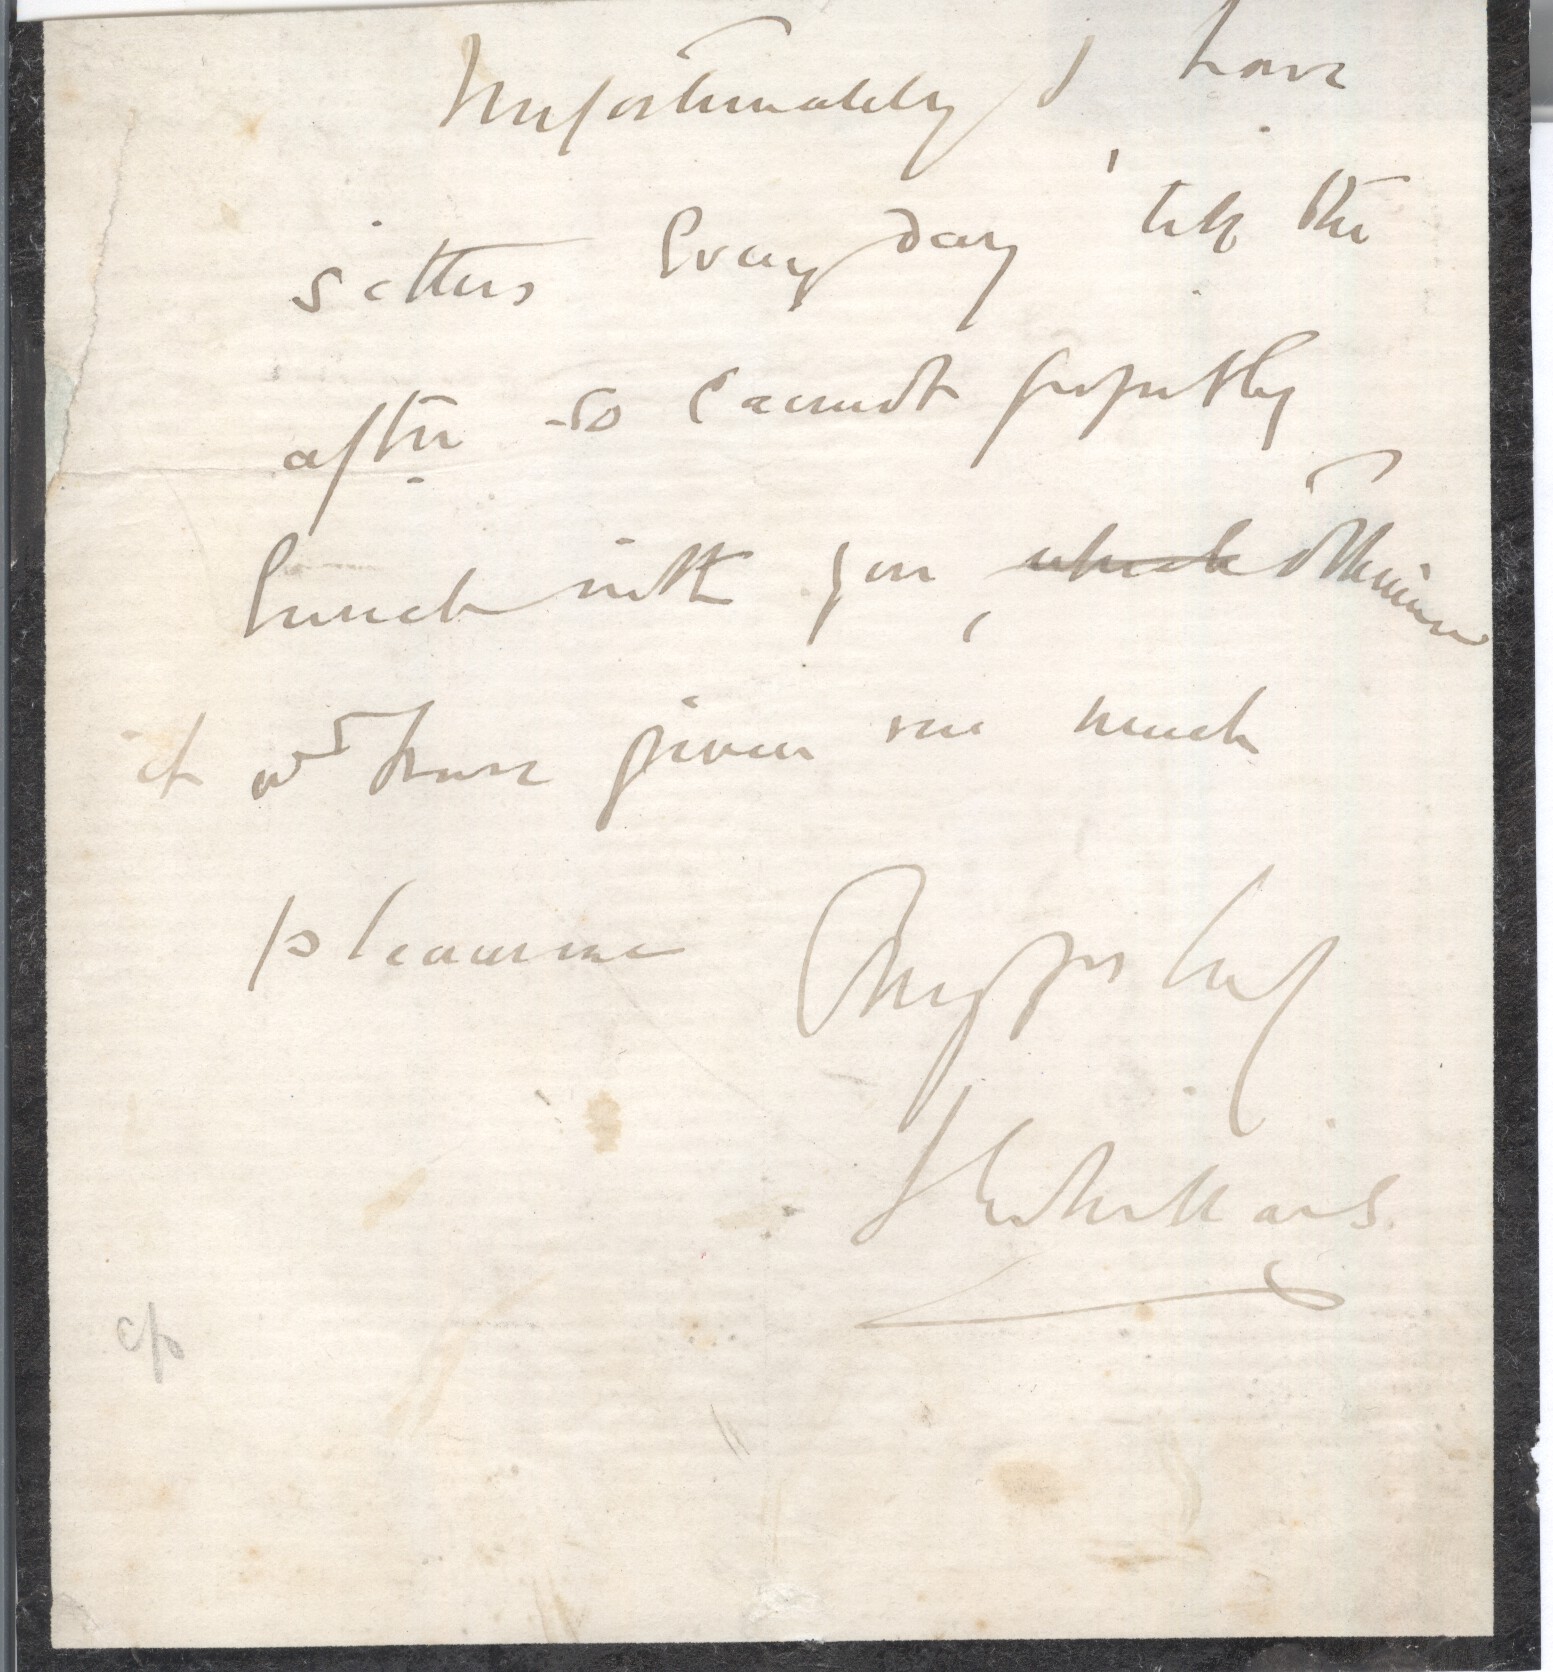 Unfortunately I have
sitters Every day 'till the
after so cannot possibly
lunch with you, which otherwise
it wd have given me much
pleasure
J E Millais
c/o